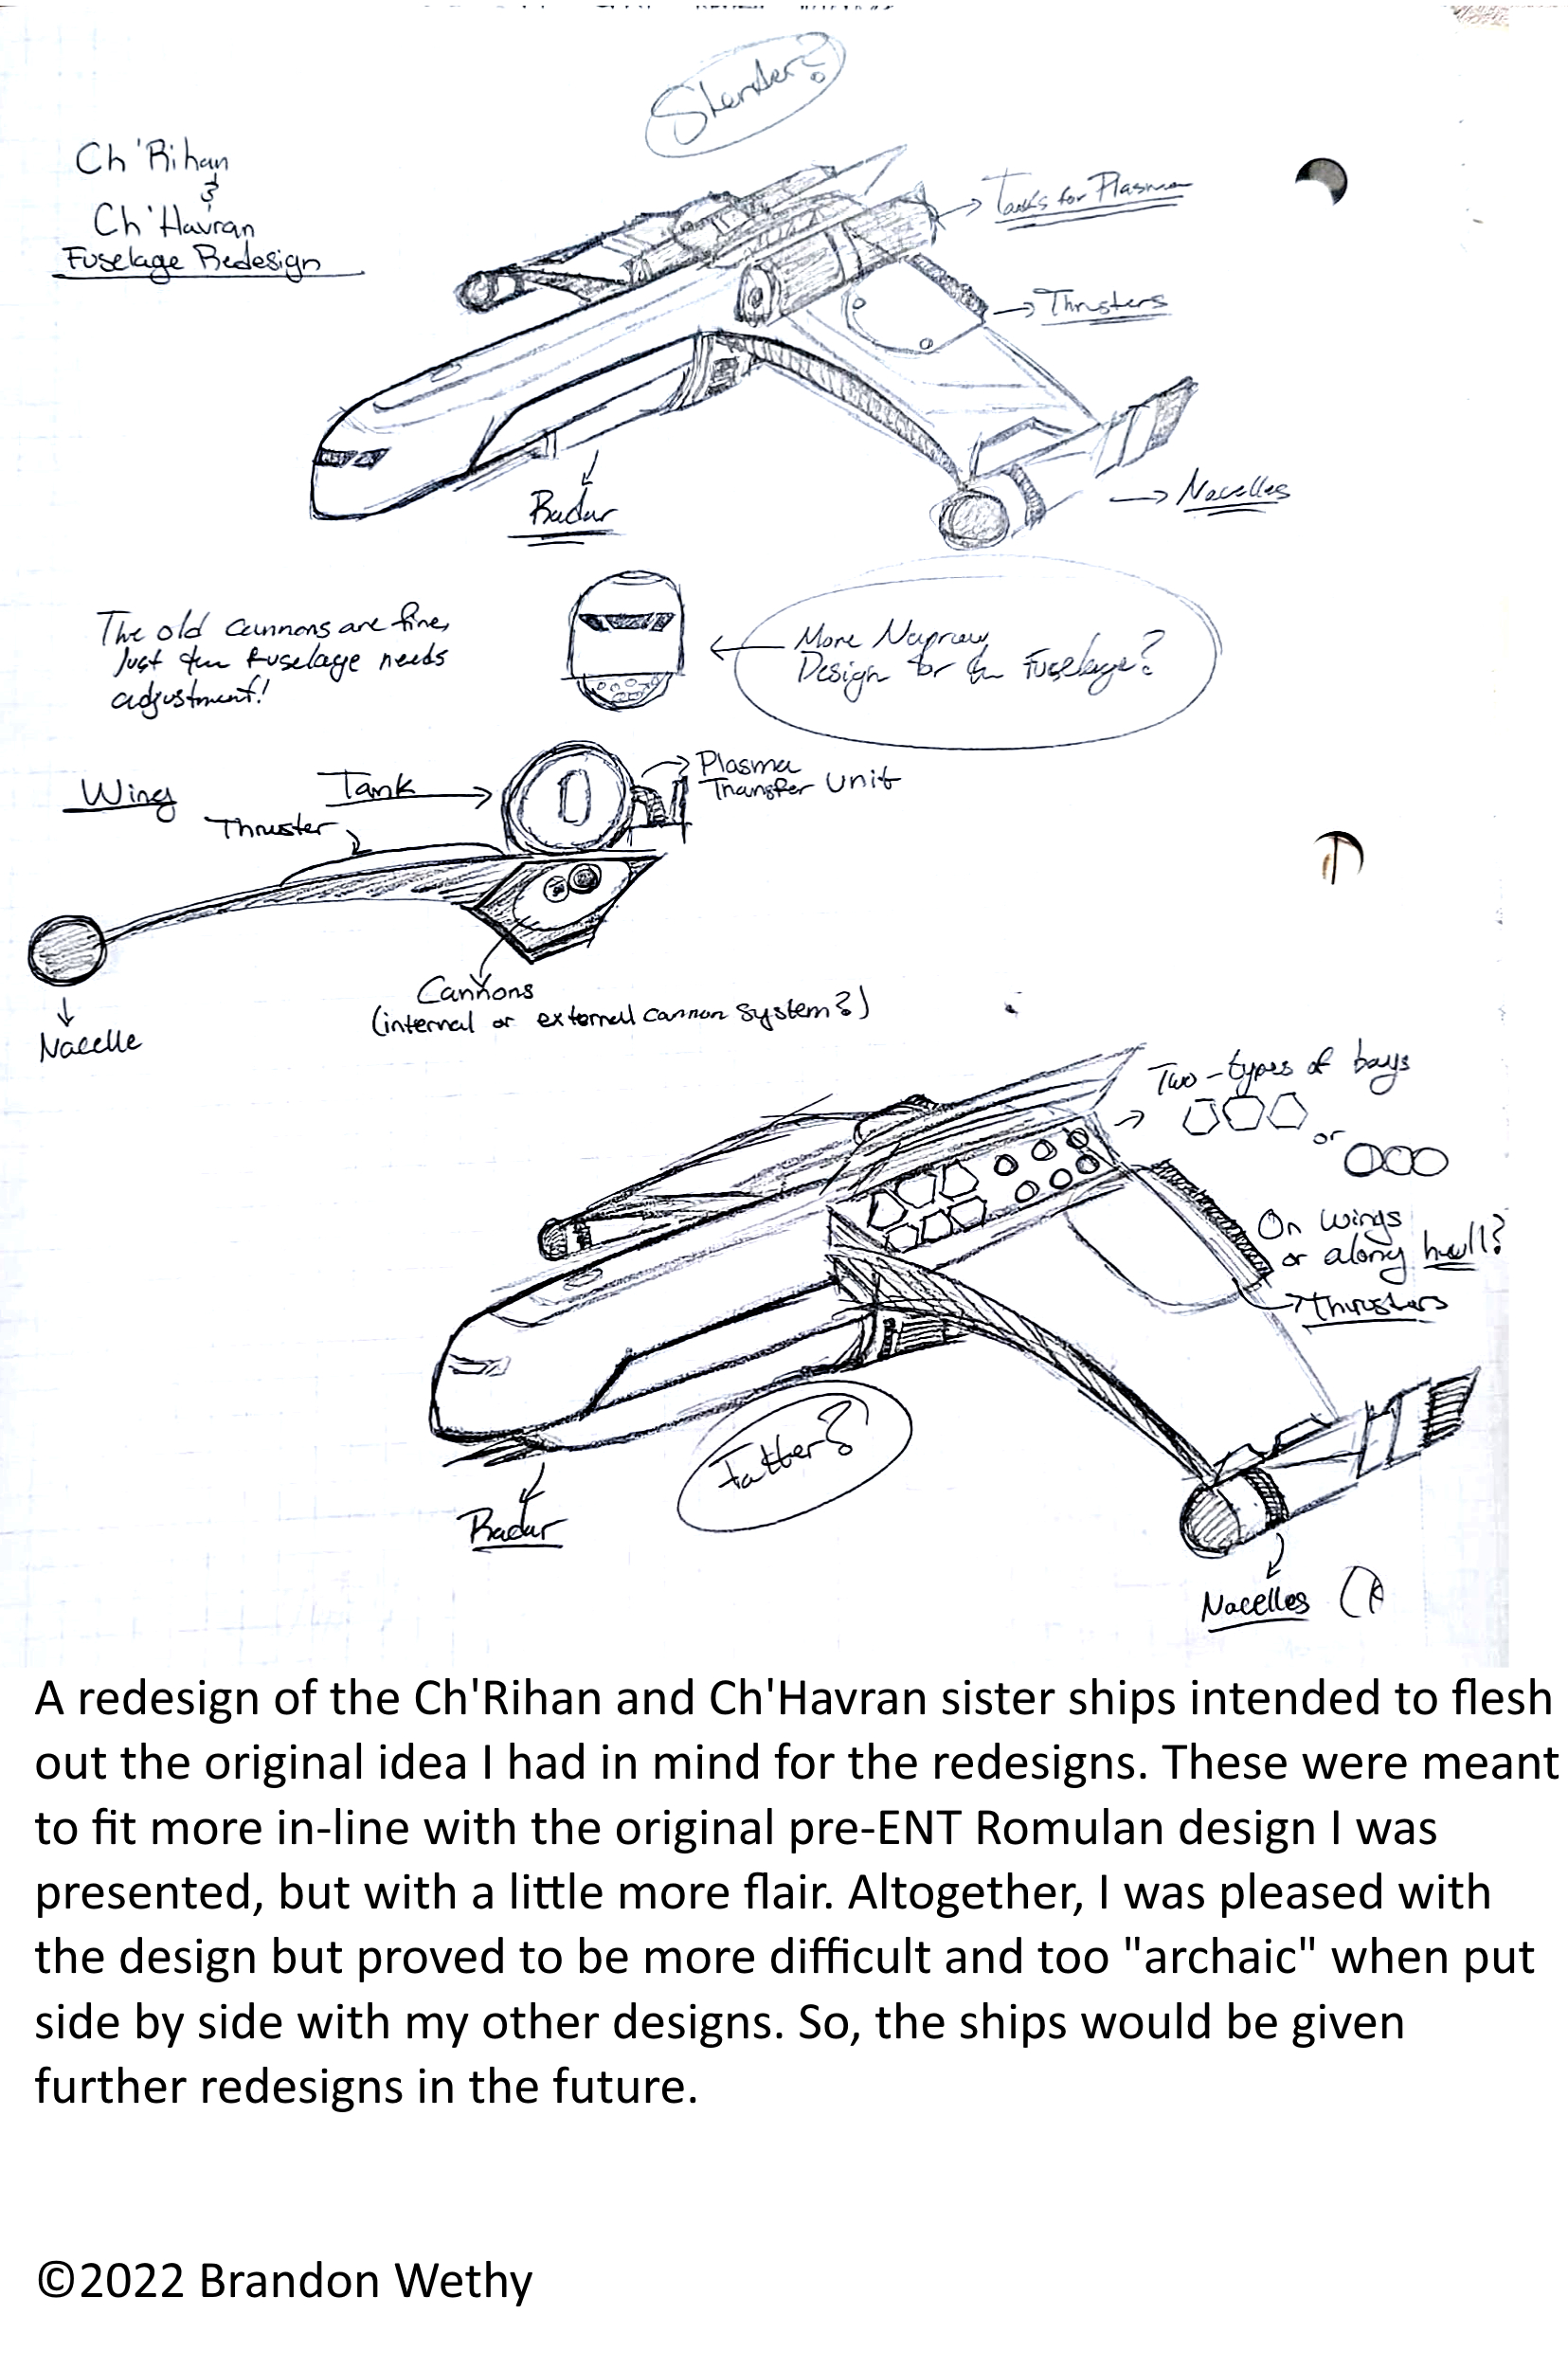 Slender?
Ch'Rihan
&
Ch'Havran
Fuselage Redesign
Tanks for Plasma
Thrusters
Nacelles
Radar
The old cannons are fine,
just the fuselage needs
adjustment!
More Narrow
Design for the Fuselage?
Wing
Tank
Thruster
Plasma
Transfer Unit
Cannons
(internal or external cannon system?)
Nacelle
Two-types of bays
or
On wings
or along hull?
Thrusters
Fatter?
Radar
Nacelles
A redesign of the Ch'Rihan and Ch'Havran sister ships intended to flesh
out the original idea I had in mind for the redesigns. These were meant
to fit more in-line with the original pre-ENT Romulan design I was
presented, but with a little more flair. Altogether, I was pleased with
the design but proved to be more difficult and too "archaic" when put
side by side with my other designs. So, the ships would be given
further redesigns in the future.
©2022 Brandon Wethy